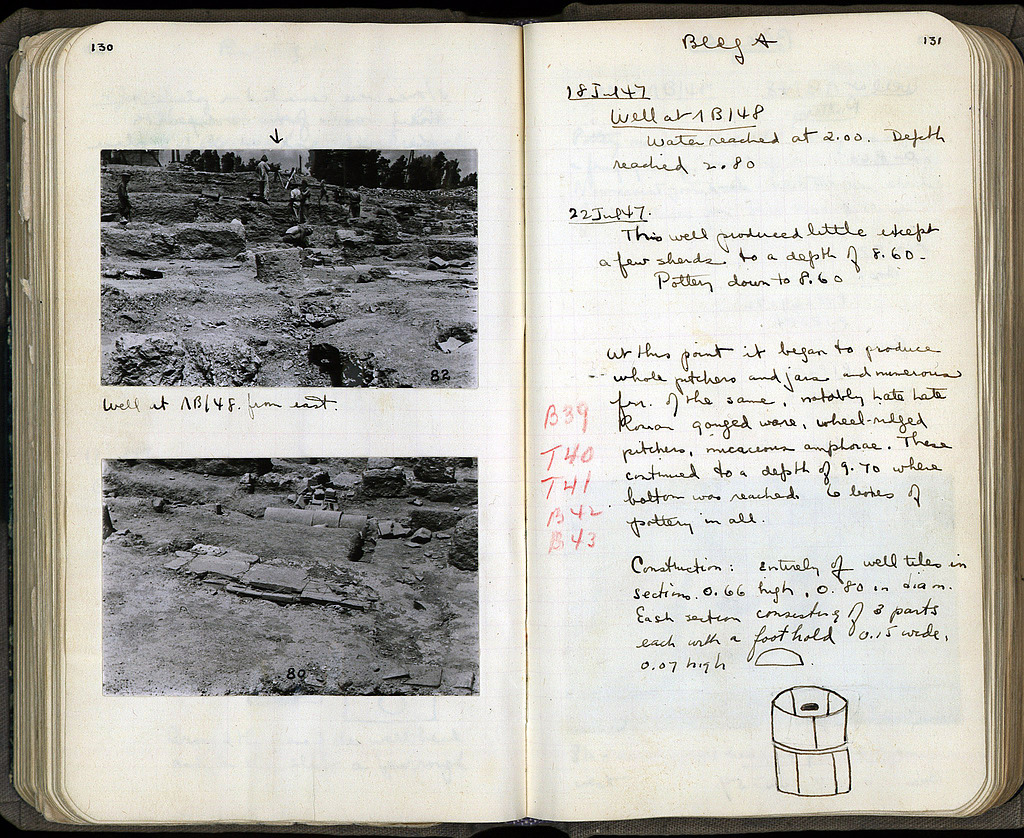 130
82
Well at ΛB/48. from east.
80
131
Bldg A
18 Jul 47
Well at ΛB/48
Water reached at 2.00. Depth
reached 2.80
22 Jul 47.
This well produced little except
a few sherds to a depth of 8.60-
Pottery down to 8.60
At this point it began to produce
whole pitchers and jars and numerous
frr. of the same, notably late
B39
Roman gouged ware, wheel-ridged
T40
pitchers, micaceous amphorae. These
T41
continued to a depth of 9.70 where
B42
bottom was reached. 6 boxes of
B43
pottery in all.
Construction: Entirely of well tiles in
sections. 0.66 high, 0.80 in diam.
Each section consisting of 3 parts
each with a foothold 0.15 wide,
0.07 high